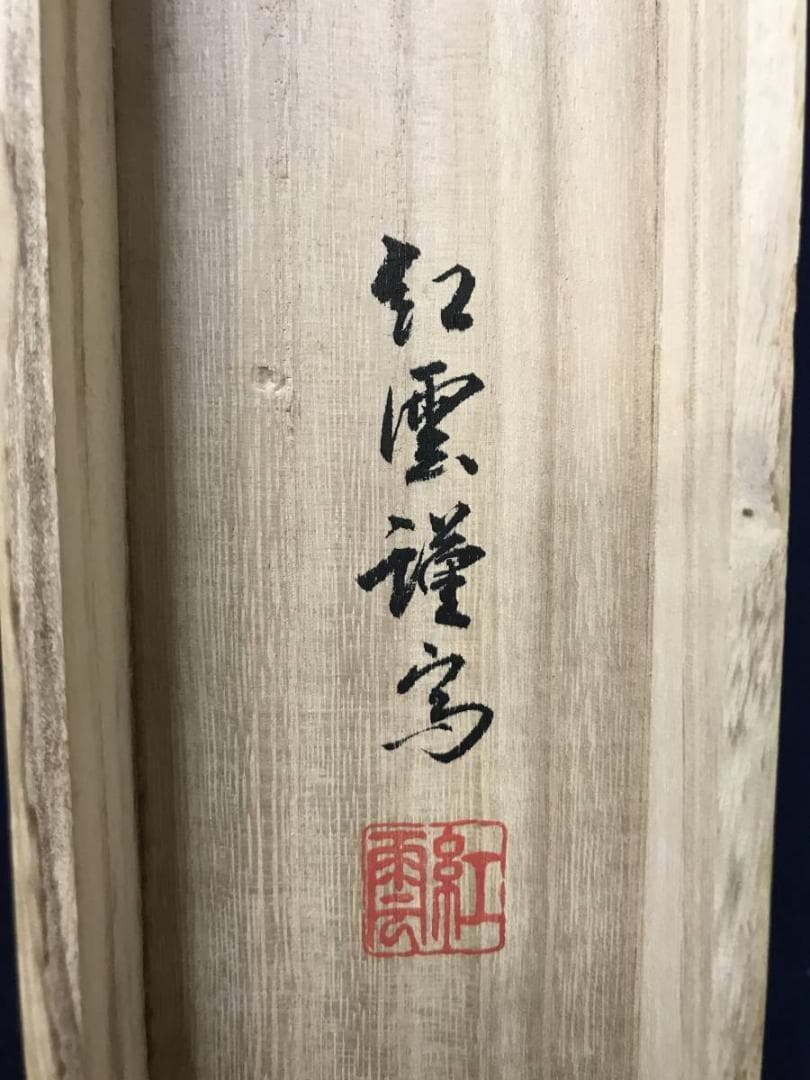 紅雲謹写
紅雲